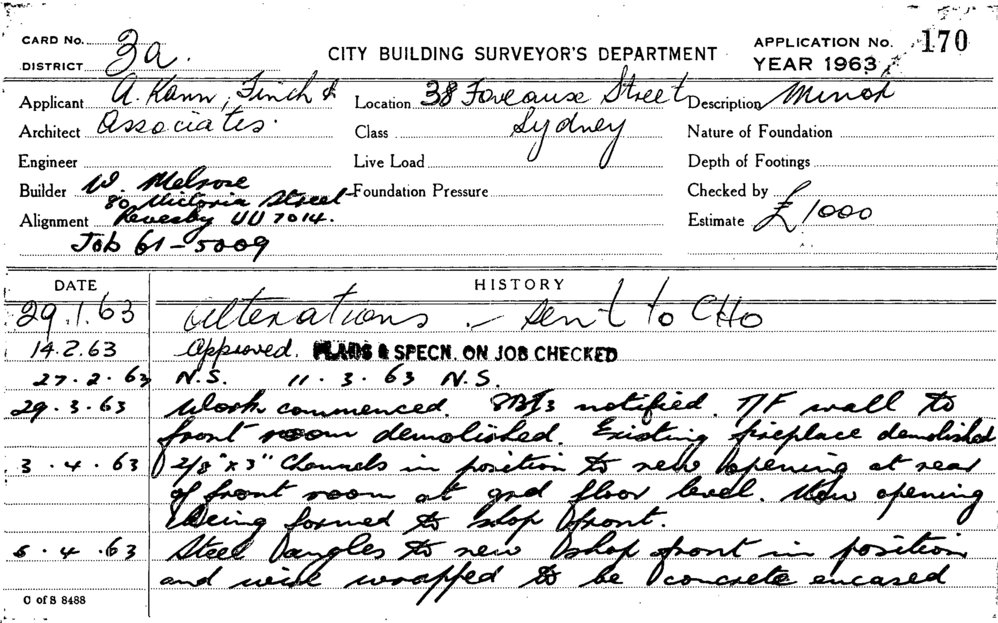 CARD No. 3a. CITY BUILDING SURVEYOR'S DEPARTMENT APPLICATION No. 170
DISTRICT YEAR 1963
Applicant A. Kann, Finch & Location 38 Foveause Street Description Minor
Architect Associates. Class Sydney Nature of Foundation
Engineer Live Load Depth of Footings
Builder W. Melrose Foundation Pressure Checked by
80 Victoria Street
Alignment Revesby UU 7014. Estimate £1000
Job 61-5009
DATE HISTORY
29.1.63 Alterations. - sent to CHO
14.2.63 Approved. PLANS & SPECN. ON JOB CHECKED
27.2.63 N.S. 11.3.63 N.S.
29.3.63 Work commenced. notified. T/F wall to
front room demolished. Existing fireplace demolished
3.4.63 2/8" x 3" Channels in position to new opening at rear
of front room at grd floor level. New opening
being formed to shop front.
5.4.63 Steel angles to new shop front in position
and wire wrapped to be concrete encased
C of S 8488